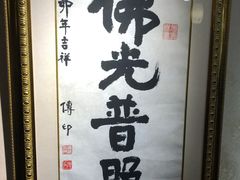 佛光普照
卯年吉祥
传印